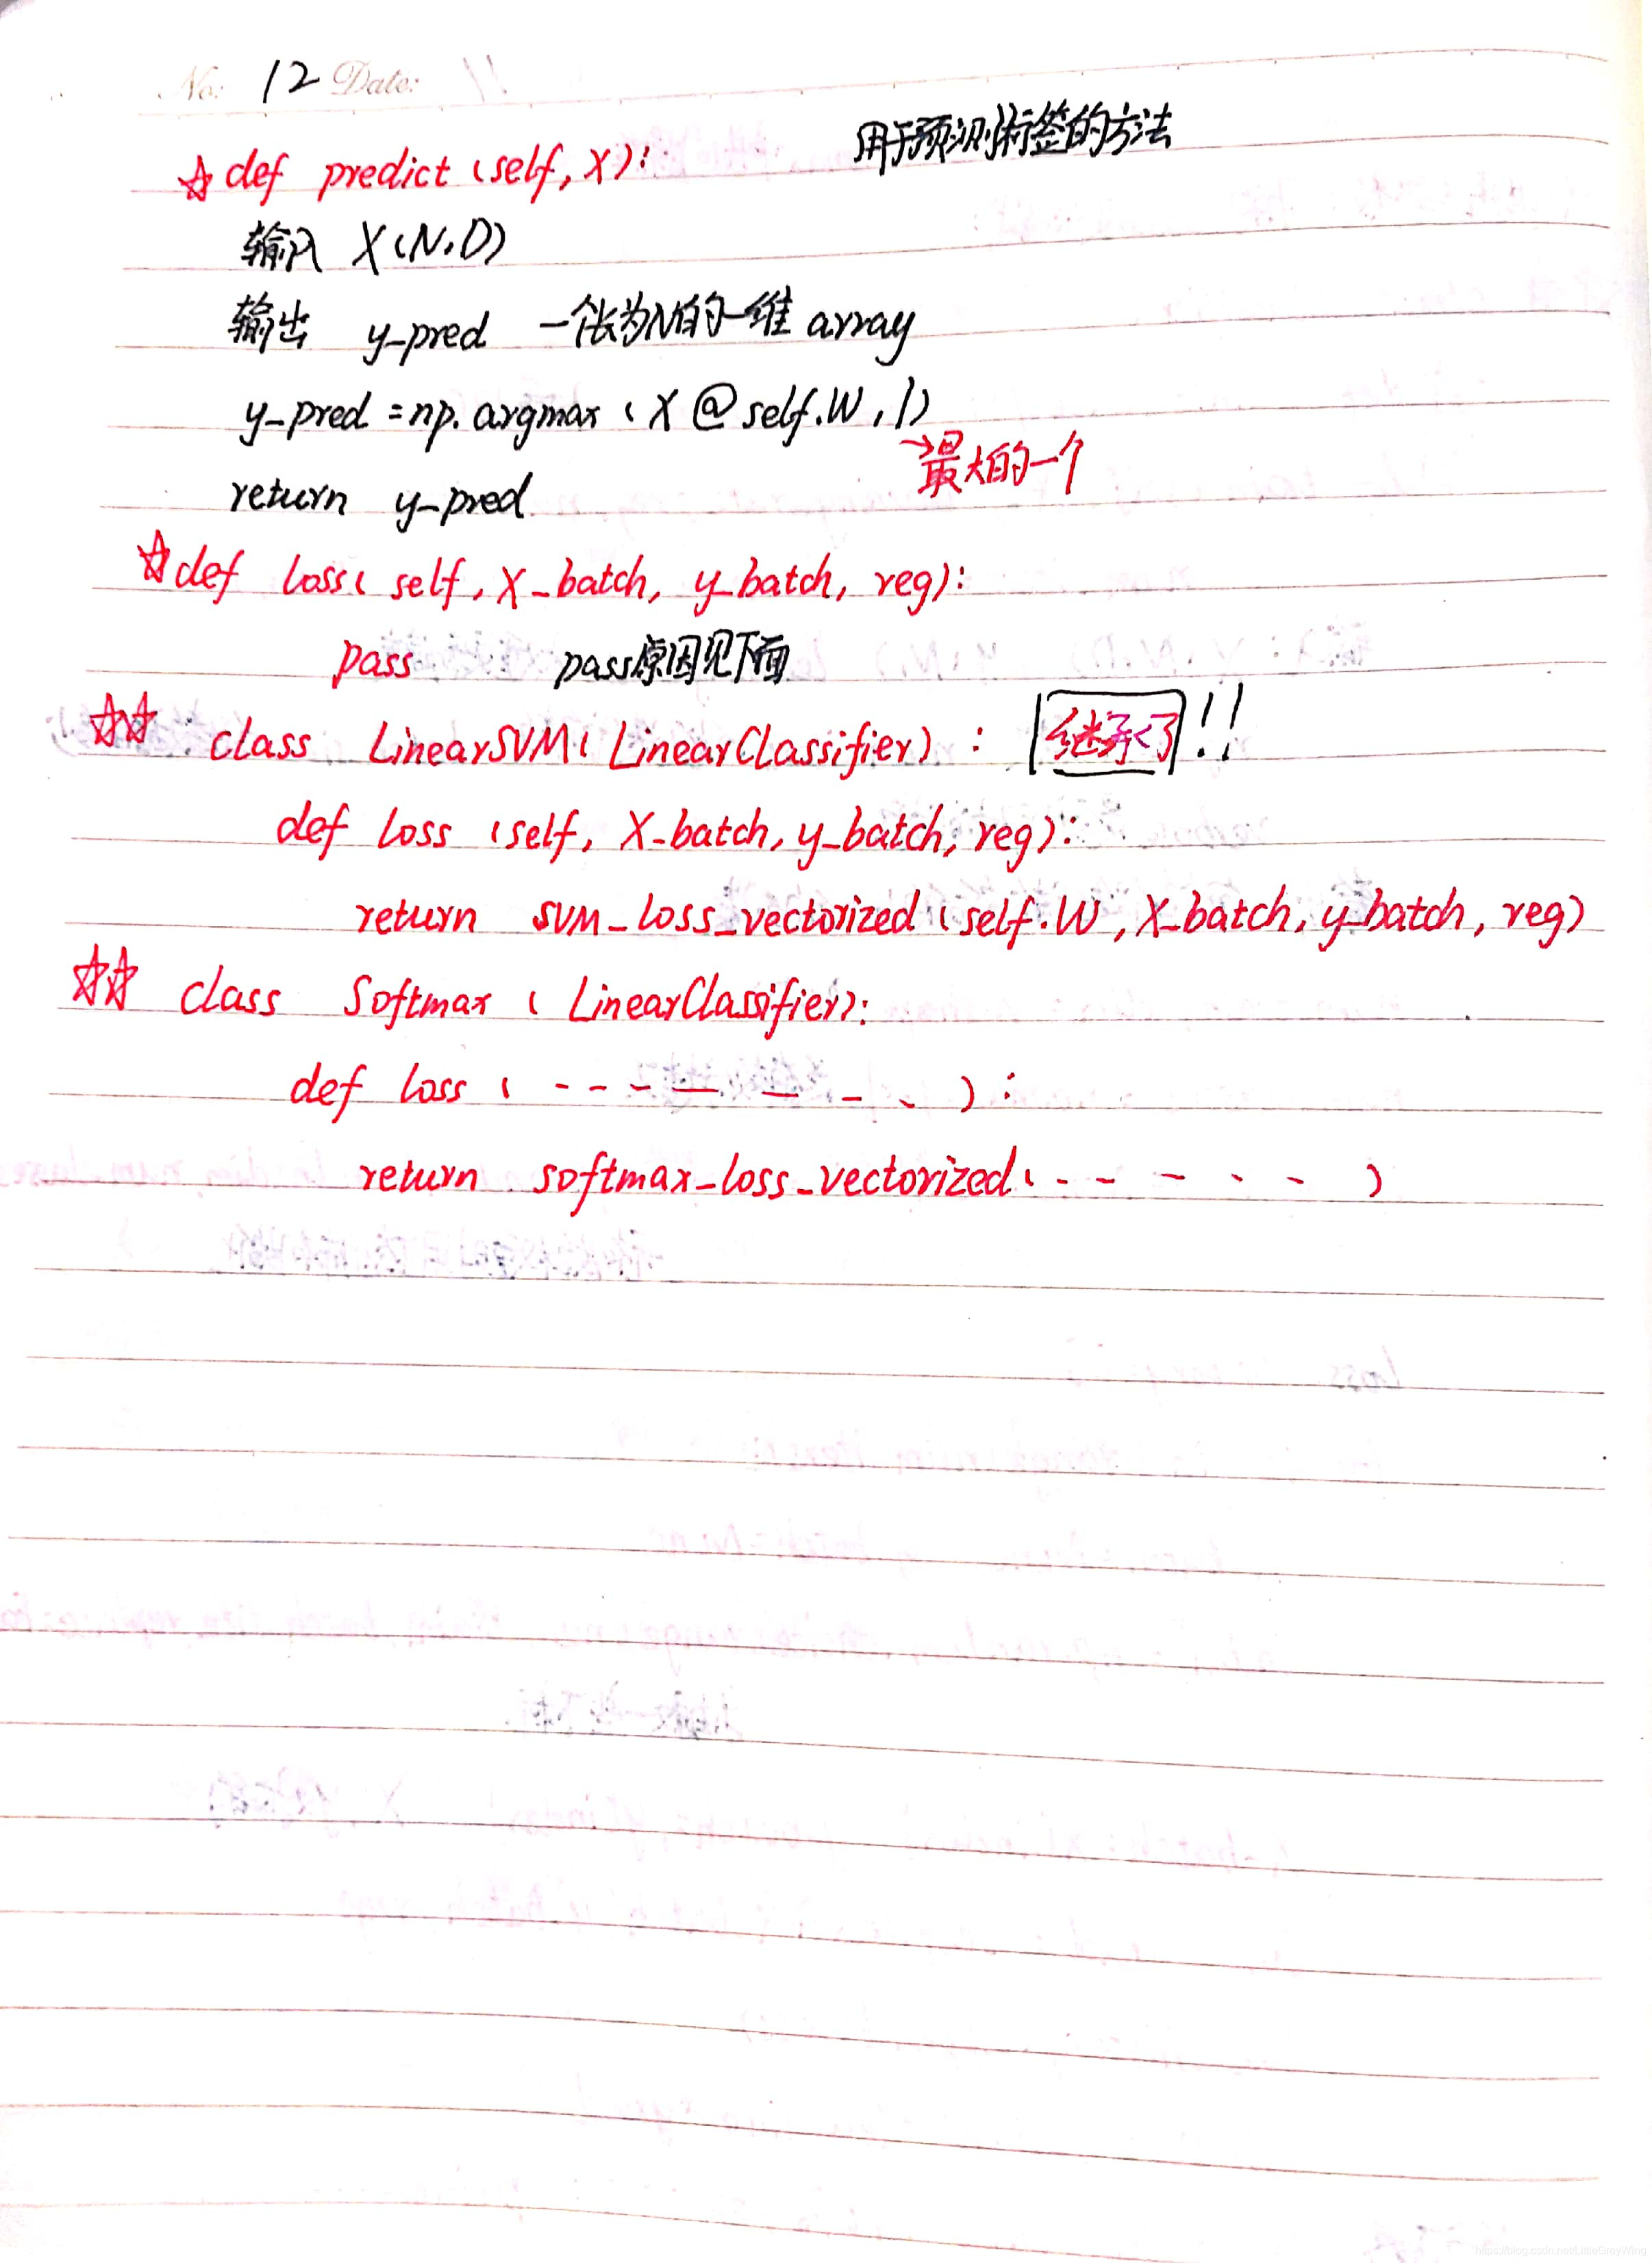 No: 12 Date:
用于预测标签的方法
☆def predict (self, X):
输入 X(N,D)
输出 y_pred 一个长为N的一维 array
y_pred = np.argmax (X @ self.W, 1)
→最大的一个
return y_pred
☆def loss( self, X_batch, y_batch, reg):
pass pass原因见下面
☆☆ class LinearSVM( LinearClassifier) : 继承了!!
def loss (self, X_batch, y_batch, reg):
return SVM_loss_vectorized (self.W, X_batch, y_batch, reg)
☆☆ class Softmax ( LinearClassifier):
def loss ( - - - - - - - ) :
return softmax_loss_vectorized( - - - - - )
https://blog.csdn.net/LittleGreyWing